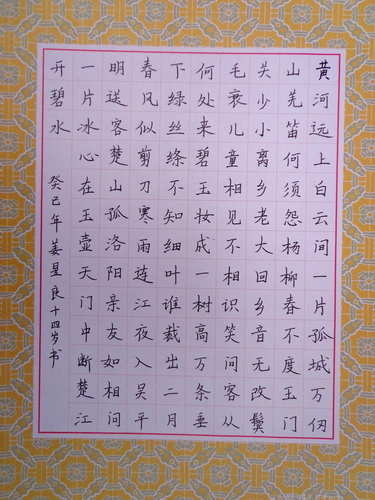 黄河远上白云间一片孤城万仞
山羌笛何须怨杨柳春不度玉门
关少小离乡老大回乡音无改鬓
毛衰儿童相见不相识笑问客从
何处来碧玉妆成一树高万条垂
下绿丝绦不知细叶谁裁出二月
春风似剪刀寒雨连江夜入吴平
明送客楚山孤洛阳亲友如相问
一片冰心在玉壶天门中断楚江
开碧水
癸巳年姜星良十四岁书